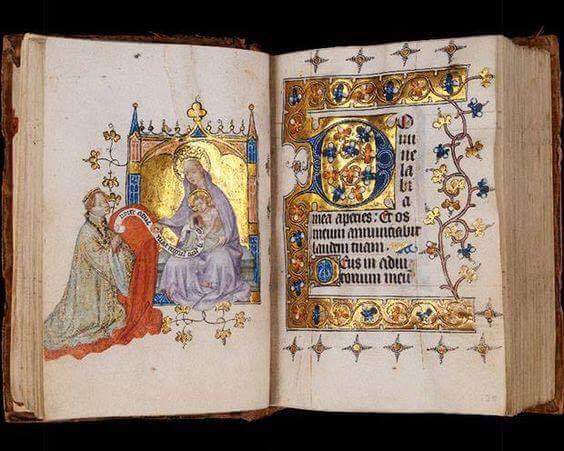 Do
mi
ne
la
bi
a
mea aperies: Et os
meum annunciabit
laudem tuam.
Deus in adiu
torium meū